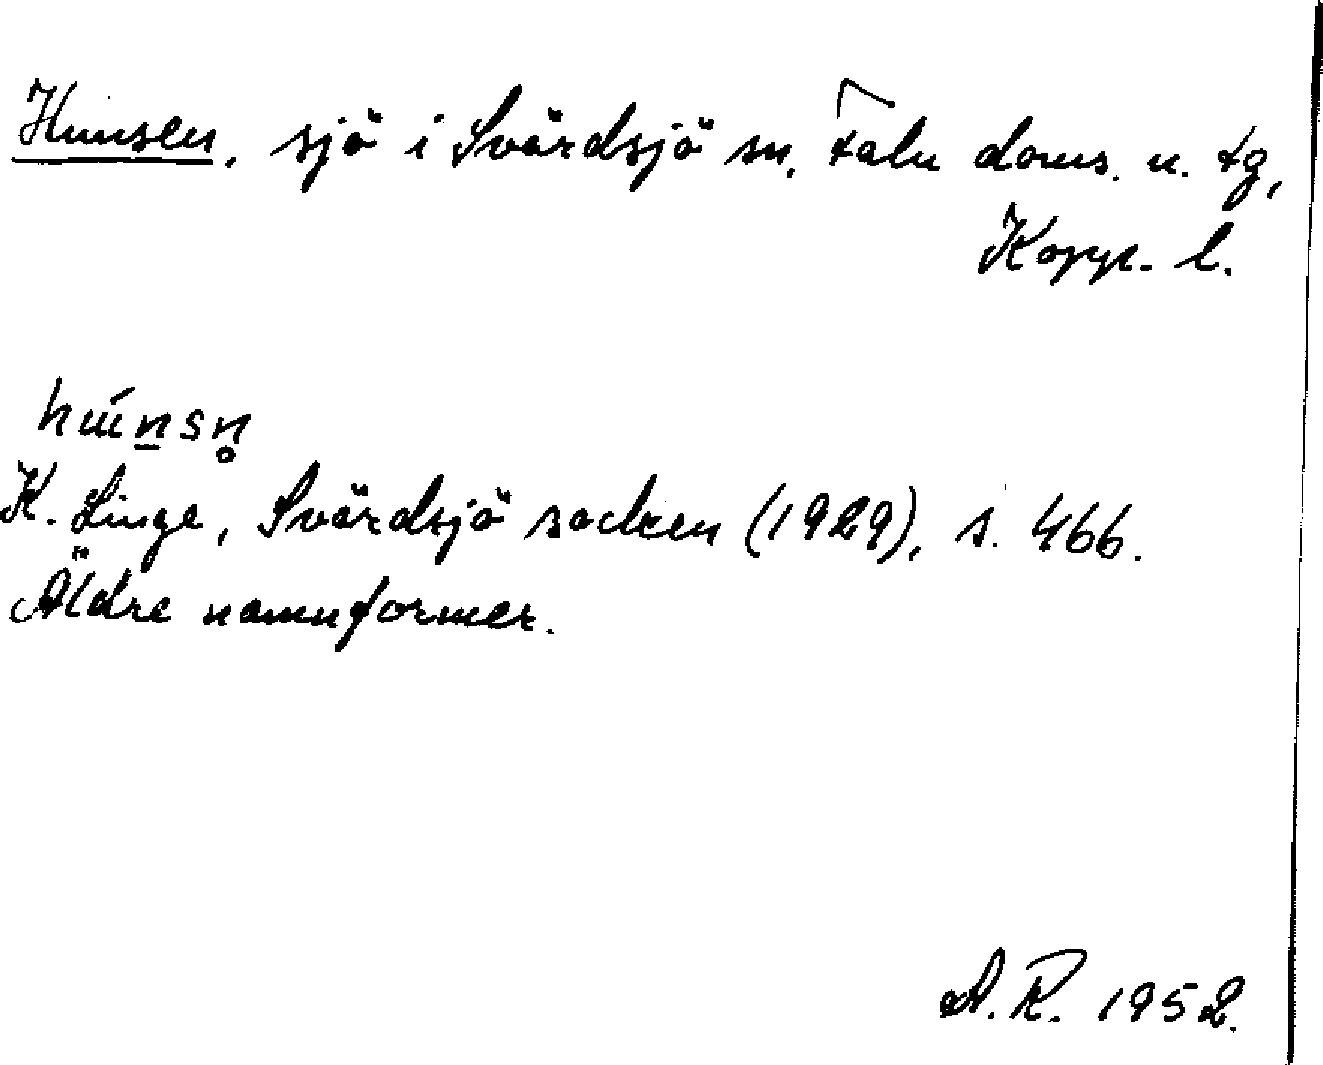 Hunsen, sjö i Svärdsjö sn, Falu doms. o. tg,
Kopp. l.
hɯ́n̲sn̥
K. Linge, Svärdsjö socken (1929), s. 466.
Äldre namnformer.
A. R. 1952.